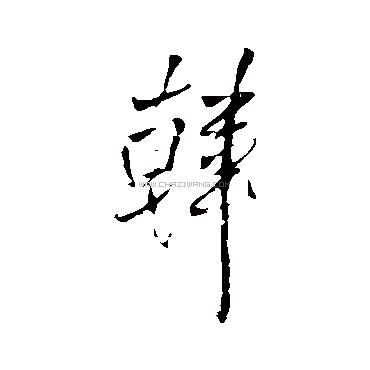 韩
WWW.CHAZIWANG.COM